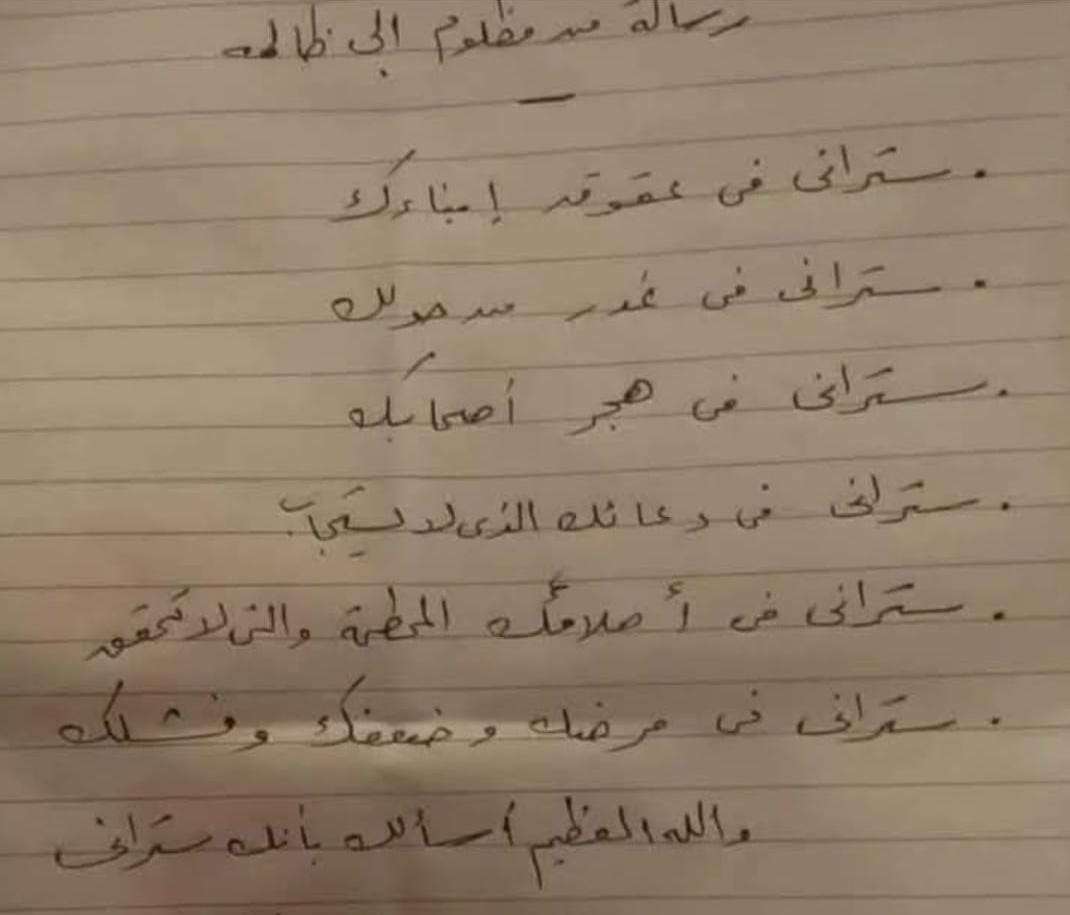 رسالة من مظلوم الى ظالمه
. سترانى فى عقوق إبناءك
. سترانى فى غدر من حولك
. سترانى فى هجر أصحابك
. سترانى فى دعائك الذى لا يستجاب
. سترانى فى أحلامك المحطمة والتى لا تتحقق
. سترانى فى مرضك وضعفك وفشلك
والله العظيم أسألك بأنك سترانى